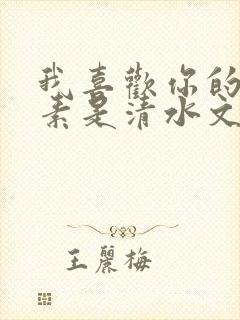 我喜歡你的
素是清水文
王麗梅